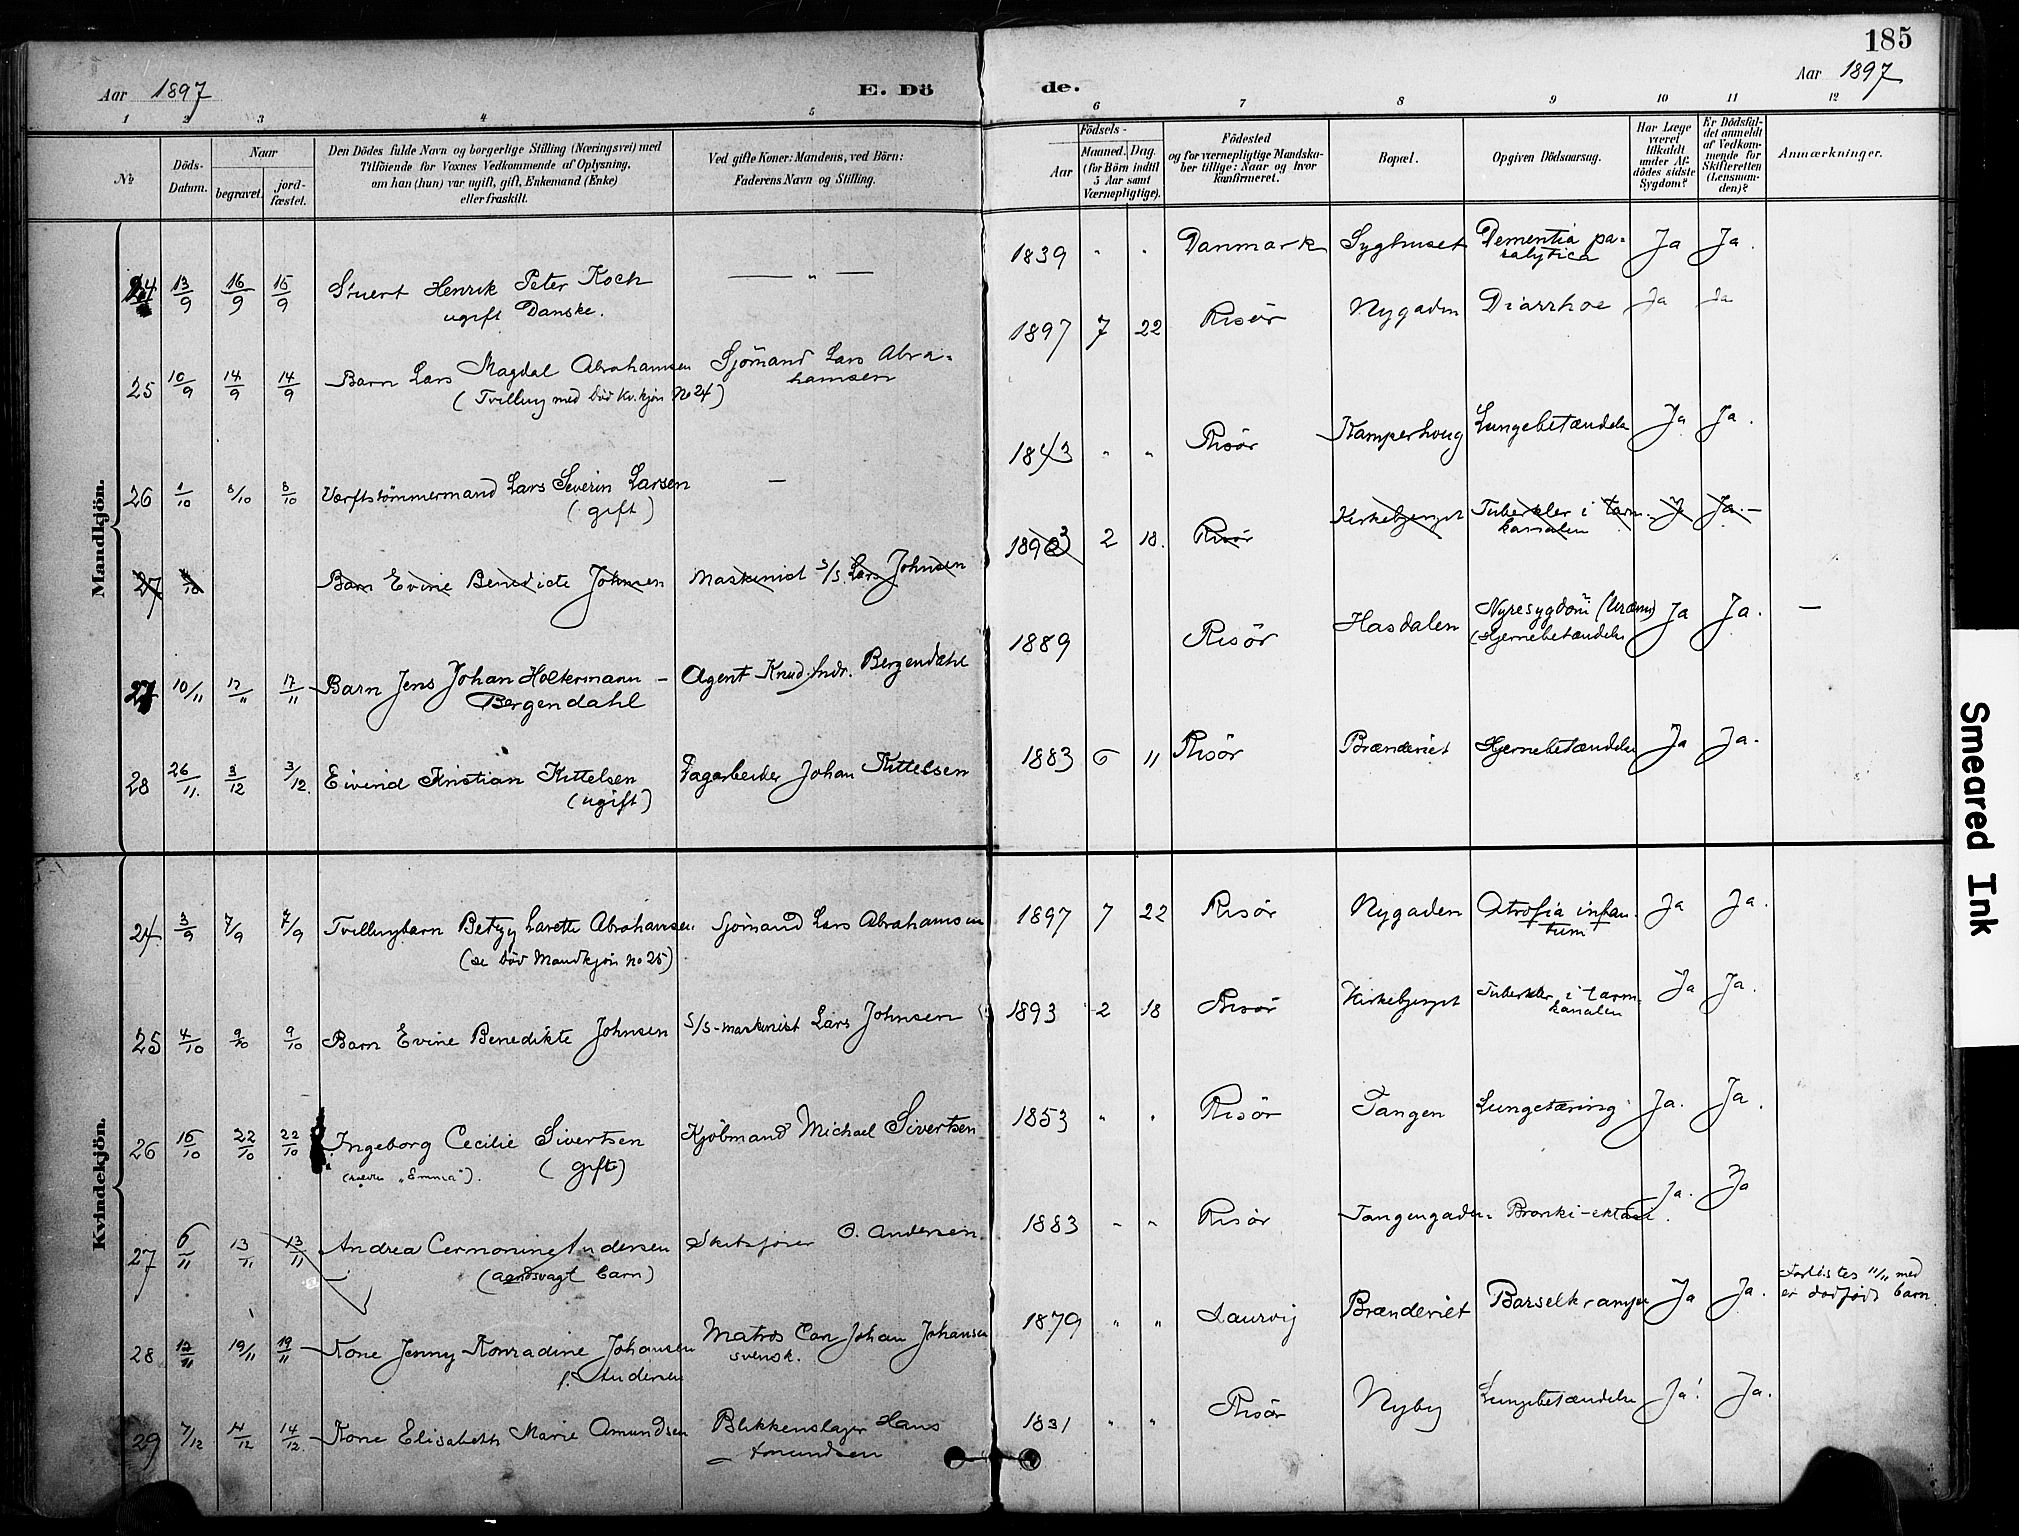 185
Aar 1897
E. Dö
de.
Aar 1897
1 2 3 4 5 6 7 8 9 10 11 12
No
Döds-Datum.
Naar
begravet.
jord-fæstet.
Den Dödes fulde Navn og borgerlige Stilling (Næringsvei) med
Tilföiende for Voxnes Vedkommende af Oplysning,
om han (hun) var ugift, gift, Enkemand (Enke)
eller fraskilt.
Ved gifte Koner: Mandens, ved Börn:
Faderens Navn og Stilling.
Födsels-
Aar
Maaned. Dag.
(for Börn indtil
5 Aar samt
Værnepligtige).
Födested
og for værnepligtige Mandska-
ber tillige: Naar og hvor
konfirmeret.
Bopæl.
Opgiven Dödsaarsag.
Har Læge
været
tilkaldt
under Af-
dödes sidste
Sygdom?
Er Dödsfal-
det anmeldt
af Vedkom-
mende for
Skifteretten
(Lensman-
den)?
Anmærkninger.
Mandkjön.
24 13/9 16/9 15/9 Stuert Henrik Peter Koch — " — 1839 " " Danmark Sygehuset Dementia pa-
ralytica Ja Ja.
ugift Danske.
25 10/9 14/9 14/9 Barn Lars Magdal Abrahamsen Sjömand Lars Abra-
hamsen 1897 7 22 Risör Nygaden Diarrhoe Ja Ja
(Tvilling med Död Kv.kjön No 24)
26 1/10 8/10 8/10 Værftstömmermand Lars Severin Larsen — 1843 " " Risör Kamperhoug Lungebetændelse Ja Ja.
(gift)
27 4/10 Barn Evine Benedicte Johnsen Maskinist S/S. Lars Johnsen 1893 2 18. Risör Kirkebjerget Tuberkler i tarm-
kanalen Ja Ja. —
27 10/11 17/11 17/11 Barn Jens Johan Holtermann - Agent Knud Andr. Bergendahl 1889 Risör Hasdalen Nyresygdom (Uræmi) Ja Ja. —
Bergendahl (Hjernebetændelse
28 26/11. 3/12 3/12. Eivind Kristian Kittelsen Dagarbeider Johan Kittelsen 1883 6 11 Risör Brænderiet Hjernebetændelse Ja Ja.
(ugift)
Kvindekjön.
24 3/9 7/9 7/9 Tvillingbarn Betzy Larette Abrahamsen. Sjömand Lars Abrahamsen 1897 7 22 Risör Nygaden Atrofia infan-
tum Ja Ja.
(se Död Mandkjön No 25)
25 4/10 9/10 9/10 Barn Evine Benedikte Johnsen S/S-maskinist Lars Johnsen 1893 2 18 Risör Kirkebjerget Tuberkler i tarm-
kanalen Ja Ja.
26 16/10 22/10 22/10 Ingeborg Cecilie Sivertsen Kjöbmand Michael Sivertsen 1853 " " Risör Tangen Lungetæring. Ja. Ja.
"Emma"). (gift)
27 6/11 13/11 13/11 Andrea Andersen Skibsförer O. Andersen 1883 " " Risör Tangengaden. Bronki-ektasi. Ja. Ja
(aandsvagt barn)
28 17/11 19/11 19/11 Kone Jenny Konradine Johansen Matros Carl Johan Johansen 1879 " " Laurvig Brænderiet Barselkramper Ja Ja. Forlöstes 11/11 med
et dödfödt barn.
f. Andersen svensk.
29 7/12 14/12 14/12. Kone Elisabeth Marie Amundsen Blikkenslager Hans
Amundsen 1831 " " Risör Nyby Lungebetændelse Ja. Ja.
Smeared Ink